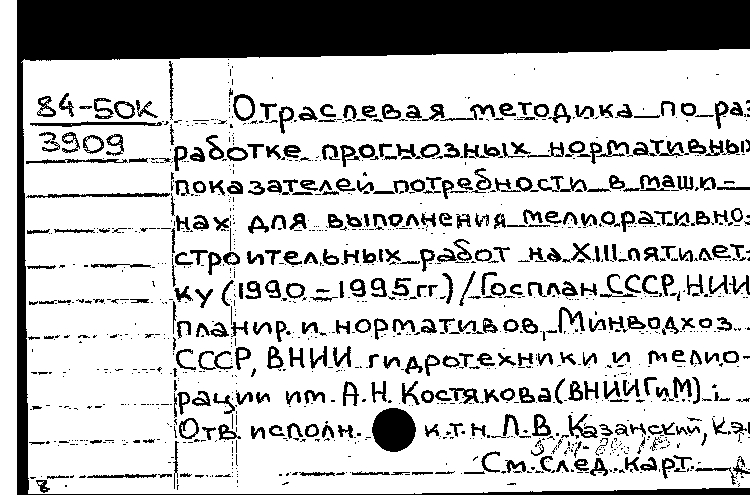 84-50К
3909
Отраслевая методика по раз
работке прогнозных нормативных
показателей потребности в маши-
нах для выполнения мелиоративно-
строительных работ на XIII пятилет-
ку (1990-1995гг)/Госплан СССР, НИИ
планир. и нормативов, Минводхоз
СССР, ВНИИ гидротехники и мелио-
рации им. А.Н. Костякова (ВНИИГиМ);
Отв. исполн. к.т.н. Л.В. Казанский,
См. след. карт.
8